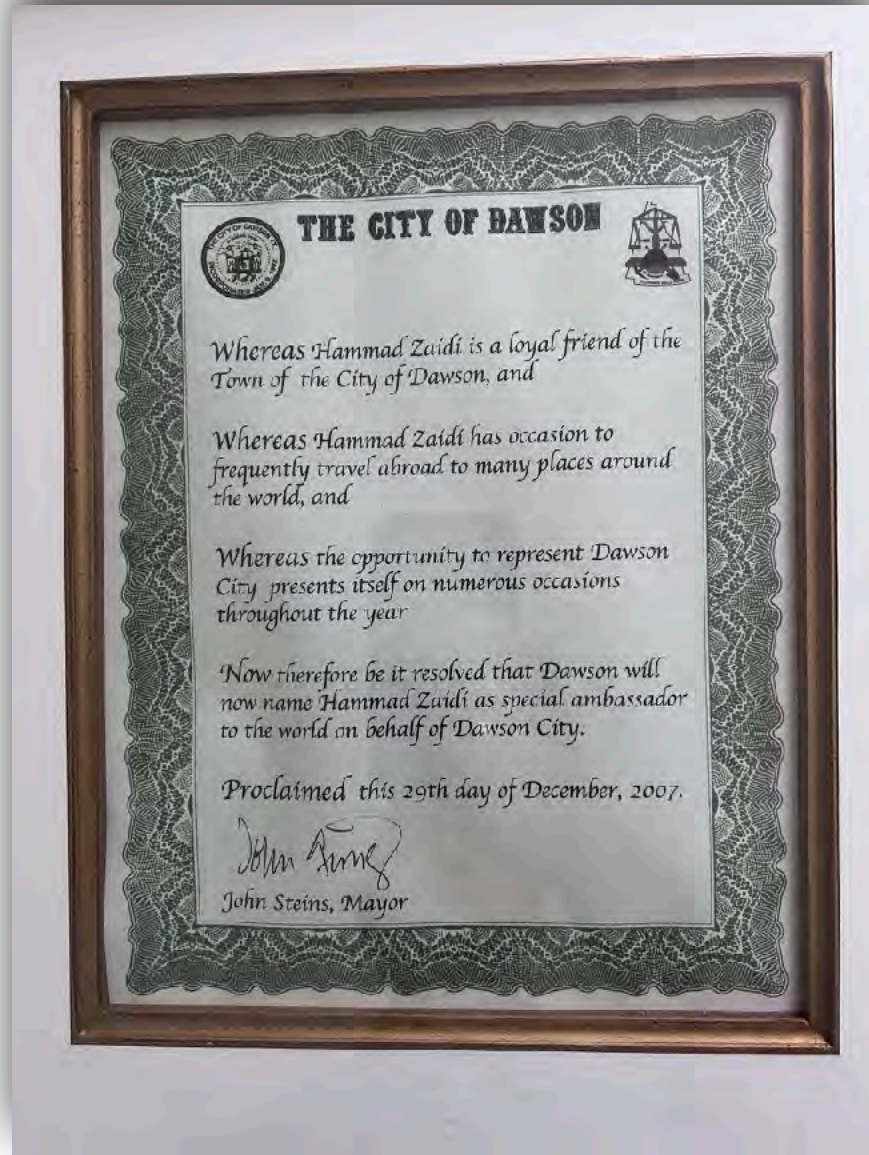 THE CITY OF DAWSON
Whereas Hammad Zaidi is a loyal friend of the
Town of the City of Dawson, and
Whereas Hammad Zaidi has occasion to
frequently travel abroad to many places around
the world, and
Whereas the opportunity to represent Dawson
City presents itself on numerous occasions
throughout the year
Now therefore be it resolved that Dawson will
now name Hammad Zaidi as special ambassador
to the world on behalf of Dawson City.
Proclaimed this 29th day of December, 2007.
John Steins, Mayor